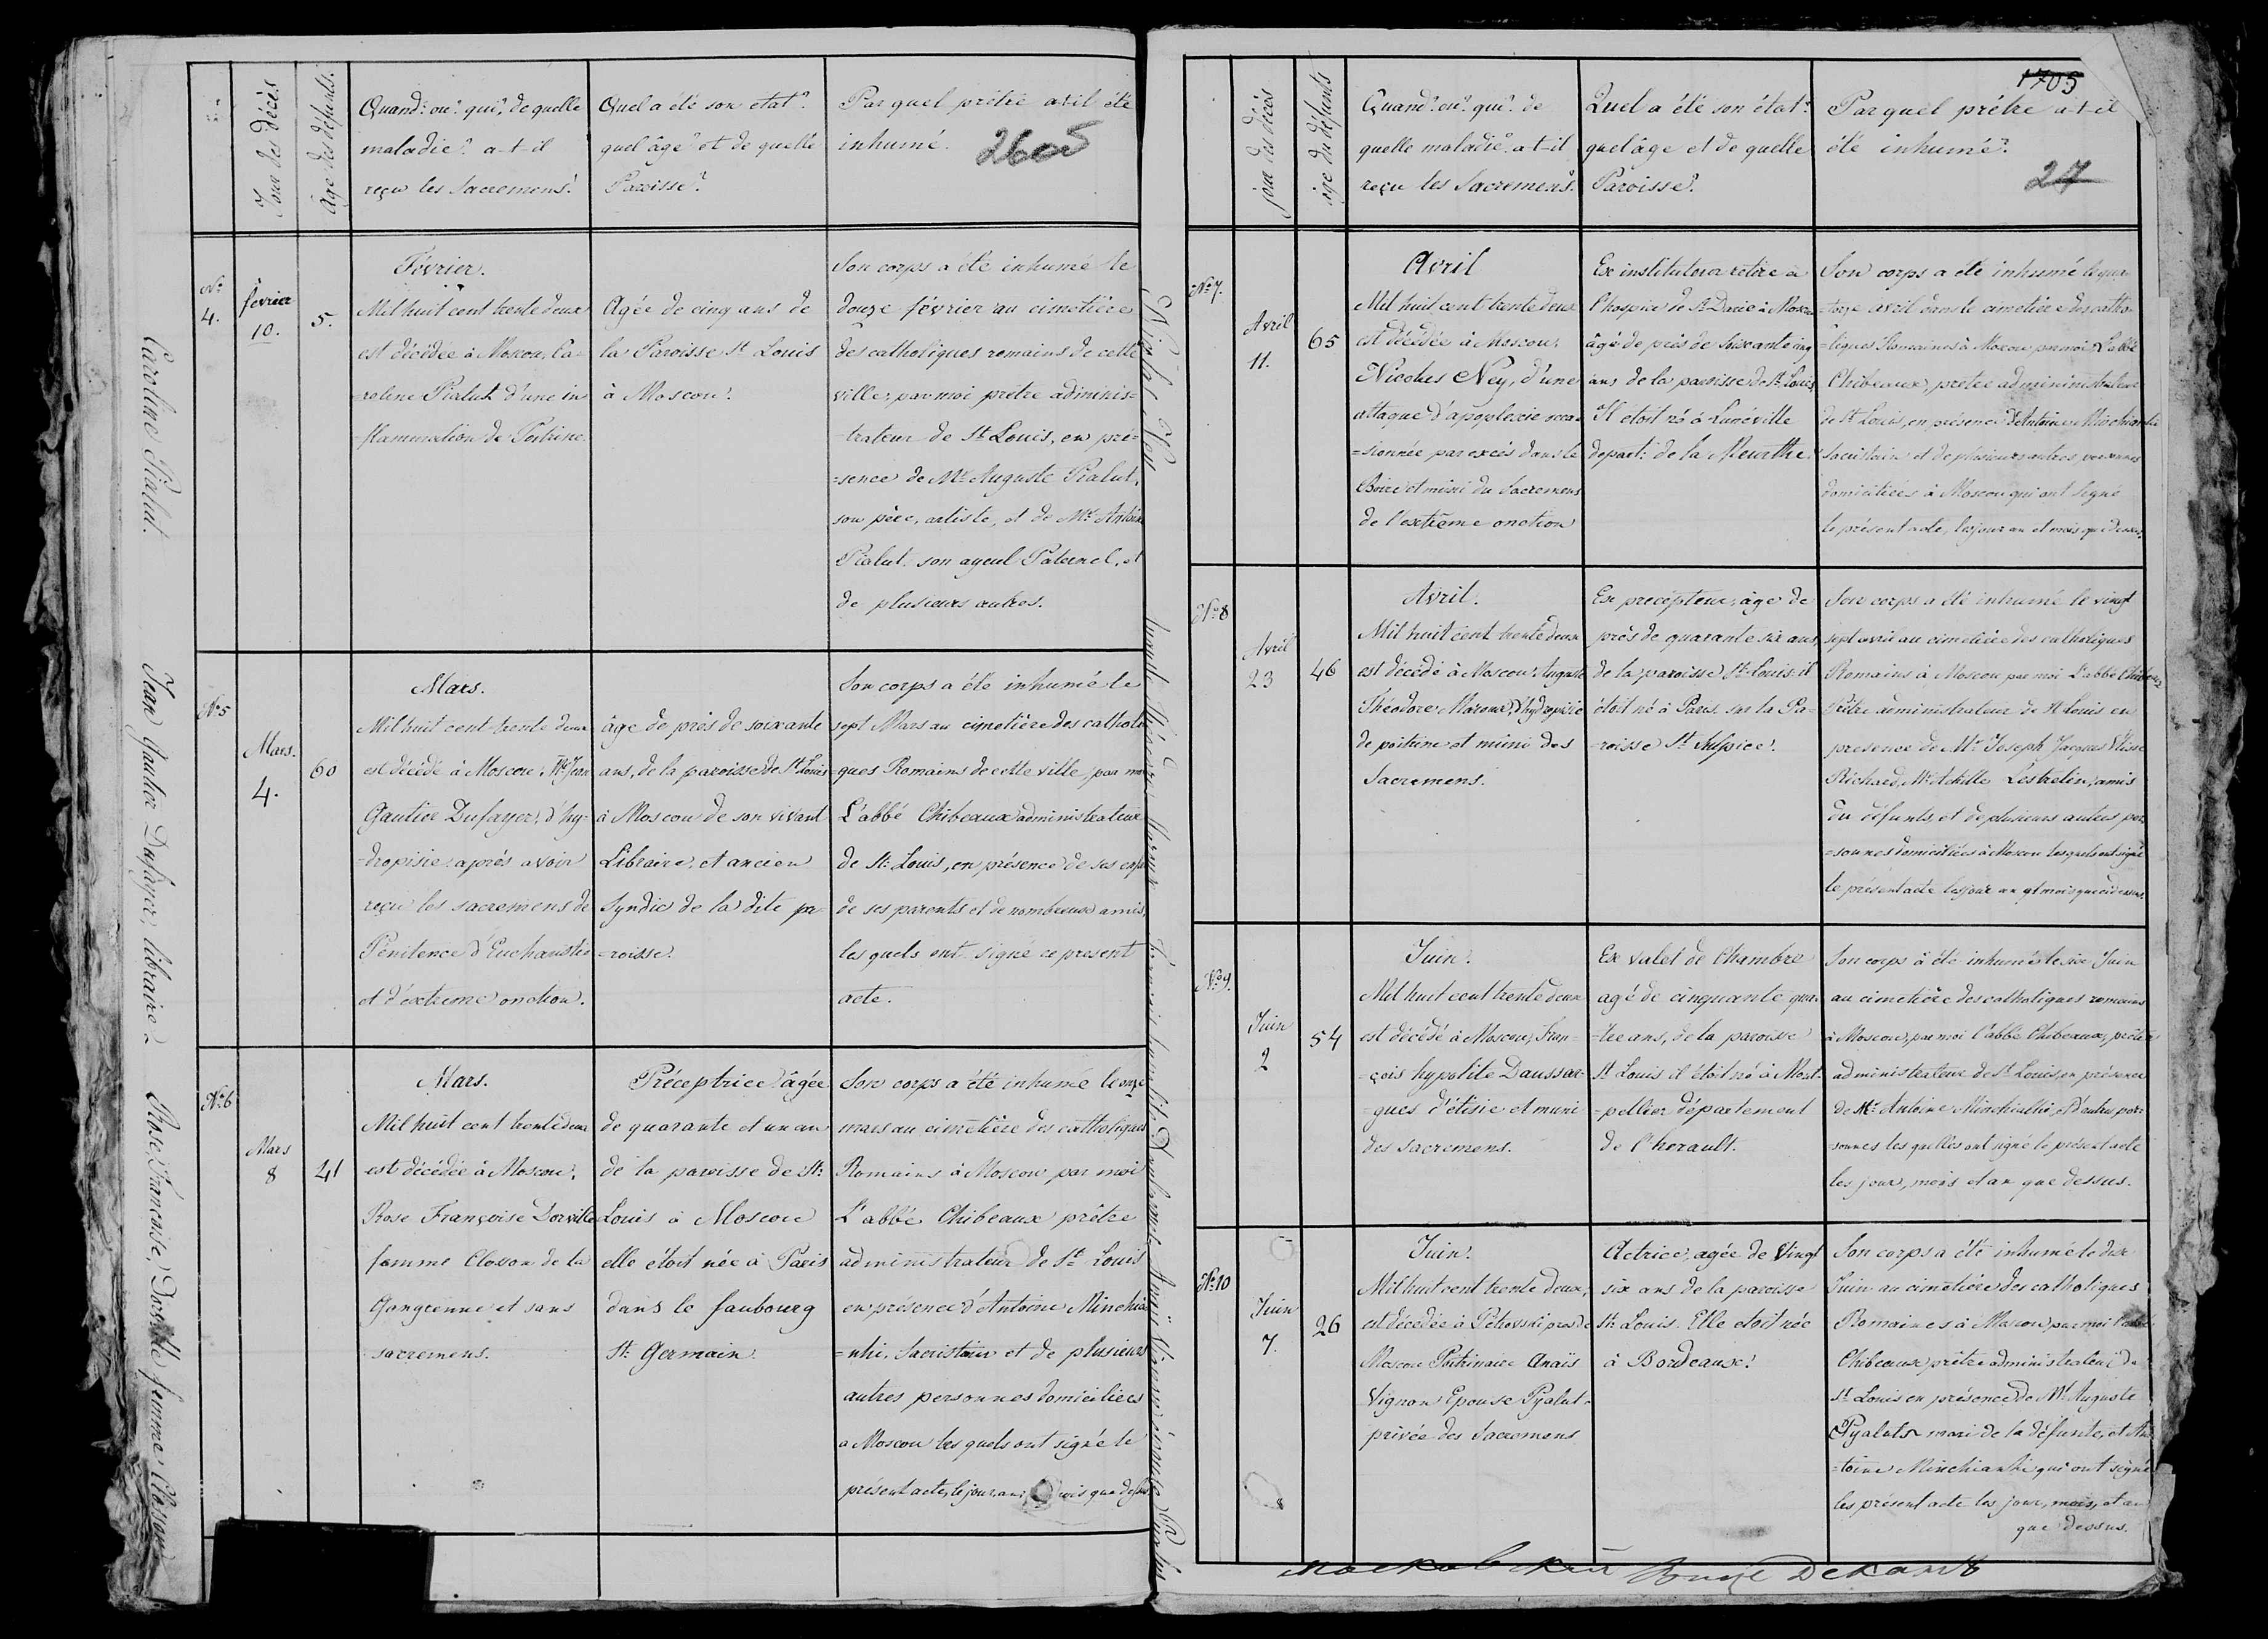 Jour des décès
Age des défunts.
Quand? ou? qui? de quelle
maladie? a-t-il
reçu les Sacremens?
Quel a été son etat?
quel âge? et de quelle
Paroisse?
Par quel prêtre a-t-il été
inhumé.
2605
No
4.
février
10.
5.
Février.
Mil huit cent trente deux
est décédée à Moscou, Ca-
=roline Pialut d'une in
=flammation de Poitrine
Agée de cinq ans de
la Paroisse St Louis
à Moscou.
Son corps a été inhumé le
douze février au cimetière
des catholiques romains de cette
ville, par moi prêtre adminis=
=trateur de St Louis, en pré=
=sence de Mr Auguste Pialut,
son père, artiste, et de Mr Antoine
Pialut son ayeul Paternel, et
de plusieurs autres.
Caroline Pialut.
No 5
Mars.
4.
60
Mars.
Mil huit cent trente deux
est décédé à Moscou, Mr Jean
Gautier Dufayer, d'hy-
=dropisie après avoir
reçu les sacremens de
Pénitence d'Euchanstie
et d'extreme onction.
âgé de près de soixante
ans, de la paroisse de St Louis
à Moscou de son vivant
Libraire, et ancien
Syndic de la dite pa-
=roisse.
Son corps a été inhumé le
sept Mars au cimetière des catholi
=ques Romains de cette ville, par moi
L'abbé Chibeaux administrateur
de St. Louis, en présence de ses
de ses parents et de nombreux amis,
les quels ont signé ce present
acte.
Jean Gautier Dufayer, libraire
No 6
Mars
8
41
Mars.
Mil huit cent trente deux
est décédée à Moscou,
Rose Françoise Dorville
femme Closson de la
Gangrenne et sans
sacremens.
Préceptrice âgée
de quarante et un an
de la paroisse de St.
Louis à Moscou
elle étoit née à Paris
dans le faubourg
St. Germain.
Son corps a été inhumé le onze
mars au cimetière des catholiques
Romains à Moscou par moi
L'abbé Chibeaux prêtre
administrateur de St Louis
en présence d'Antoine Minchia
=nhi, Sacristain et de plusieurs
autres personnes domiciliées
a Moscou les quels ont signé le
présent acte, le jour, an, mois que dessus
Rose, Francoise, Dorville femme Closson
jour des décès
age du défunts
Quand? ou? qui? de
quelle maladie? a-t-il
reçu les Sacremens?
Quel a été son état?
quel âge et de quelle
Paroisse?
Par quel prêtre a-t-il
été inhumé?
1705
27
No 7.
Avril
11.
65
Avril
Mil huit cent trente deux
est décédée à Moscou,
Nicolas Ney, d'une
attaque d'apoplexie occa=
=sionnée par excès dans le
Boire et muni du Sacremens
de l'extrême onction
Ex instituteur retiré à
l'hospice de St Darie à Moscou
âgé de près de soixante cinq
ans de la paroisse de St Louis
Il etoit né à Lunéville
depart: de la Meurthe
Son corps a été inhumé le qua-
=torze avril dans le cimetière des catho-
=liques Romaines à Moscou par moi L'abbé
Chibeaux, prêtre admininistrateur
de St Louis, en présence d'Antoine Minchianhi
Sacristain et de plusieurs autres personnes
domiciliées à Moscou qui ont Signé
le présent acte, les jour an et mois que dessus.
Nicolas Ney
No 8
Avril
23
46
Avril.
Mil huit cent trente deux
est décédé à Moscou Auguste
Théodore Maroux, d'hydropisie
de poitrine et muni des
Sacremens.
Ex precepteur, âgé de
près de quarante six ans,
de la paroisse St Louis. il
étoit né à Paris sur la Pa-
=roisse St. Sulpice.
Son corps a été inhumé le vingt
sept avril au cimetière des catholiques
Romains à Moscou par moi L'abbé Chibeaux
Prêtre administrateur de St Louis en
presence de Mr Joseph Jacques Ulisse
Richard, Mr Achille Lestrelin, amis
du défunts, et de plusieurs autres per
=sonnes domiciliées à Moscou lesquels ont signé
le présent acte les jour an et mois que ci dessus.
No 9.
Juin
2
54
Juin.
Mil huit cent trente deux
est décédé à Moscou, Fran-
=çois hypolite Daussar-
=gues d'étisie et muni
des sacremens.
Ex valet de Chambre
agé de cinquante qua-
=tre ans, de la paroisse
St Louis il étoit né à Mont-
=pellier département
de l'herault.
Son corps à été inhumé le six Juin
au cimetière des catholiques romains
à Moscou, par moi l'abbé Chibeaux, prêtre
administrateur de St Louis, en présence
de Mr Antoine Minchianhi, et d'autres per-
sonnes les quelles ont signé le présent acte
les jour, mois et an que dessus.
No 10
Juin
7.
26
Juin.
Mil huit cent trente deux,
est décédée à Petrovski près de
Moscou Poitrinaire Anaïs
Vignon Epouse Pyalut
privée des Sacremens
Actrice, agée de Vingt
six ans de la paroisse
St: Louis. Elle etoit née
à Bordeaux.
Son corps a été inhumé le dix
Juin au cimetière des catholiques
Romaines à Moscou par moi l'abbé
Chibeaux prêtre administrateur de
St Louis en présence de Mr Auguste
Pyalut mari de la défunte, et An
=toine Minchianhi qui ont signé
les présent acte les jour, mois, et an
que dessus.